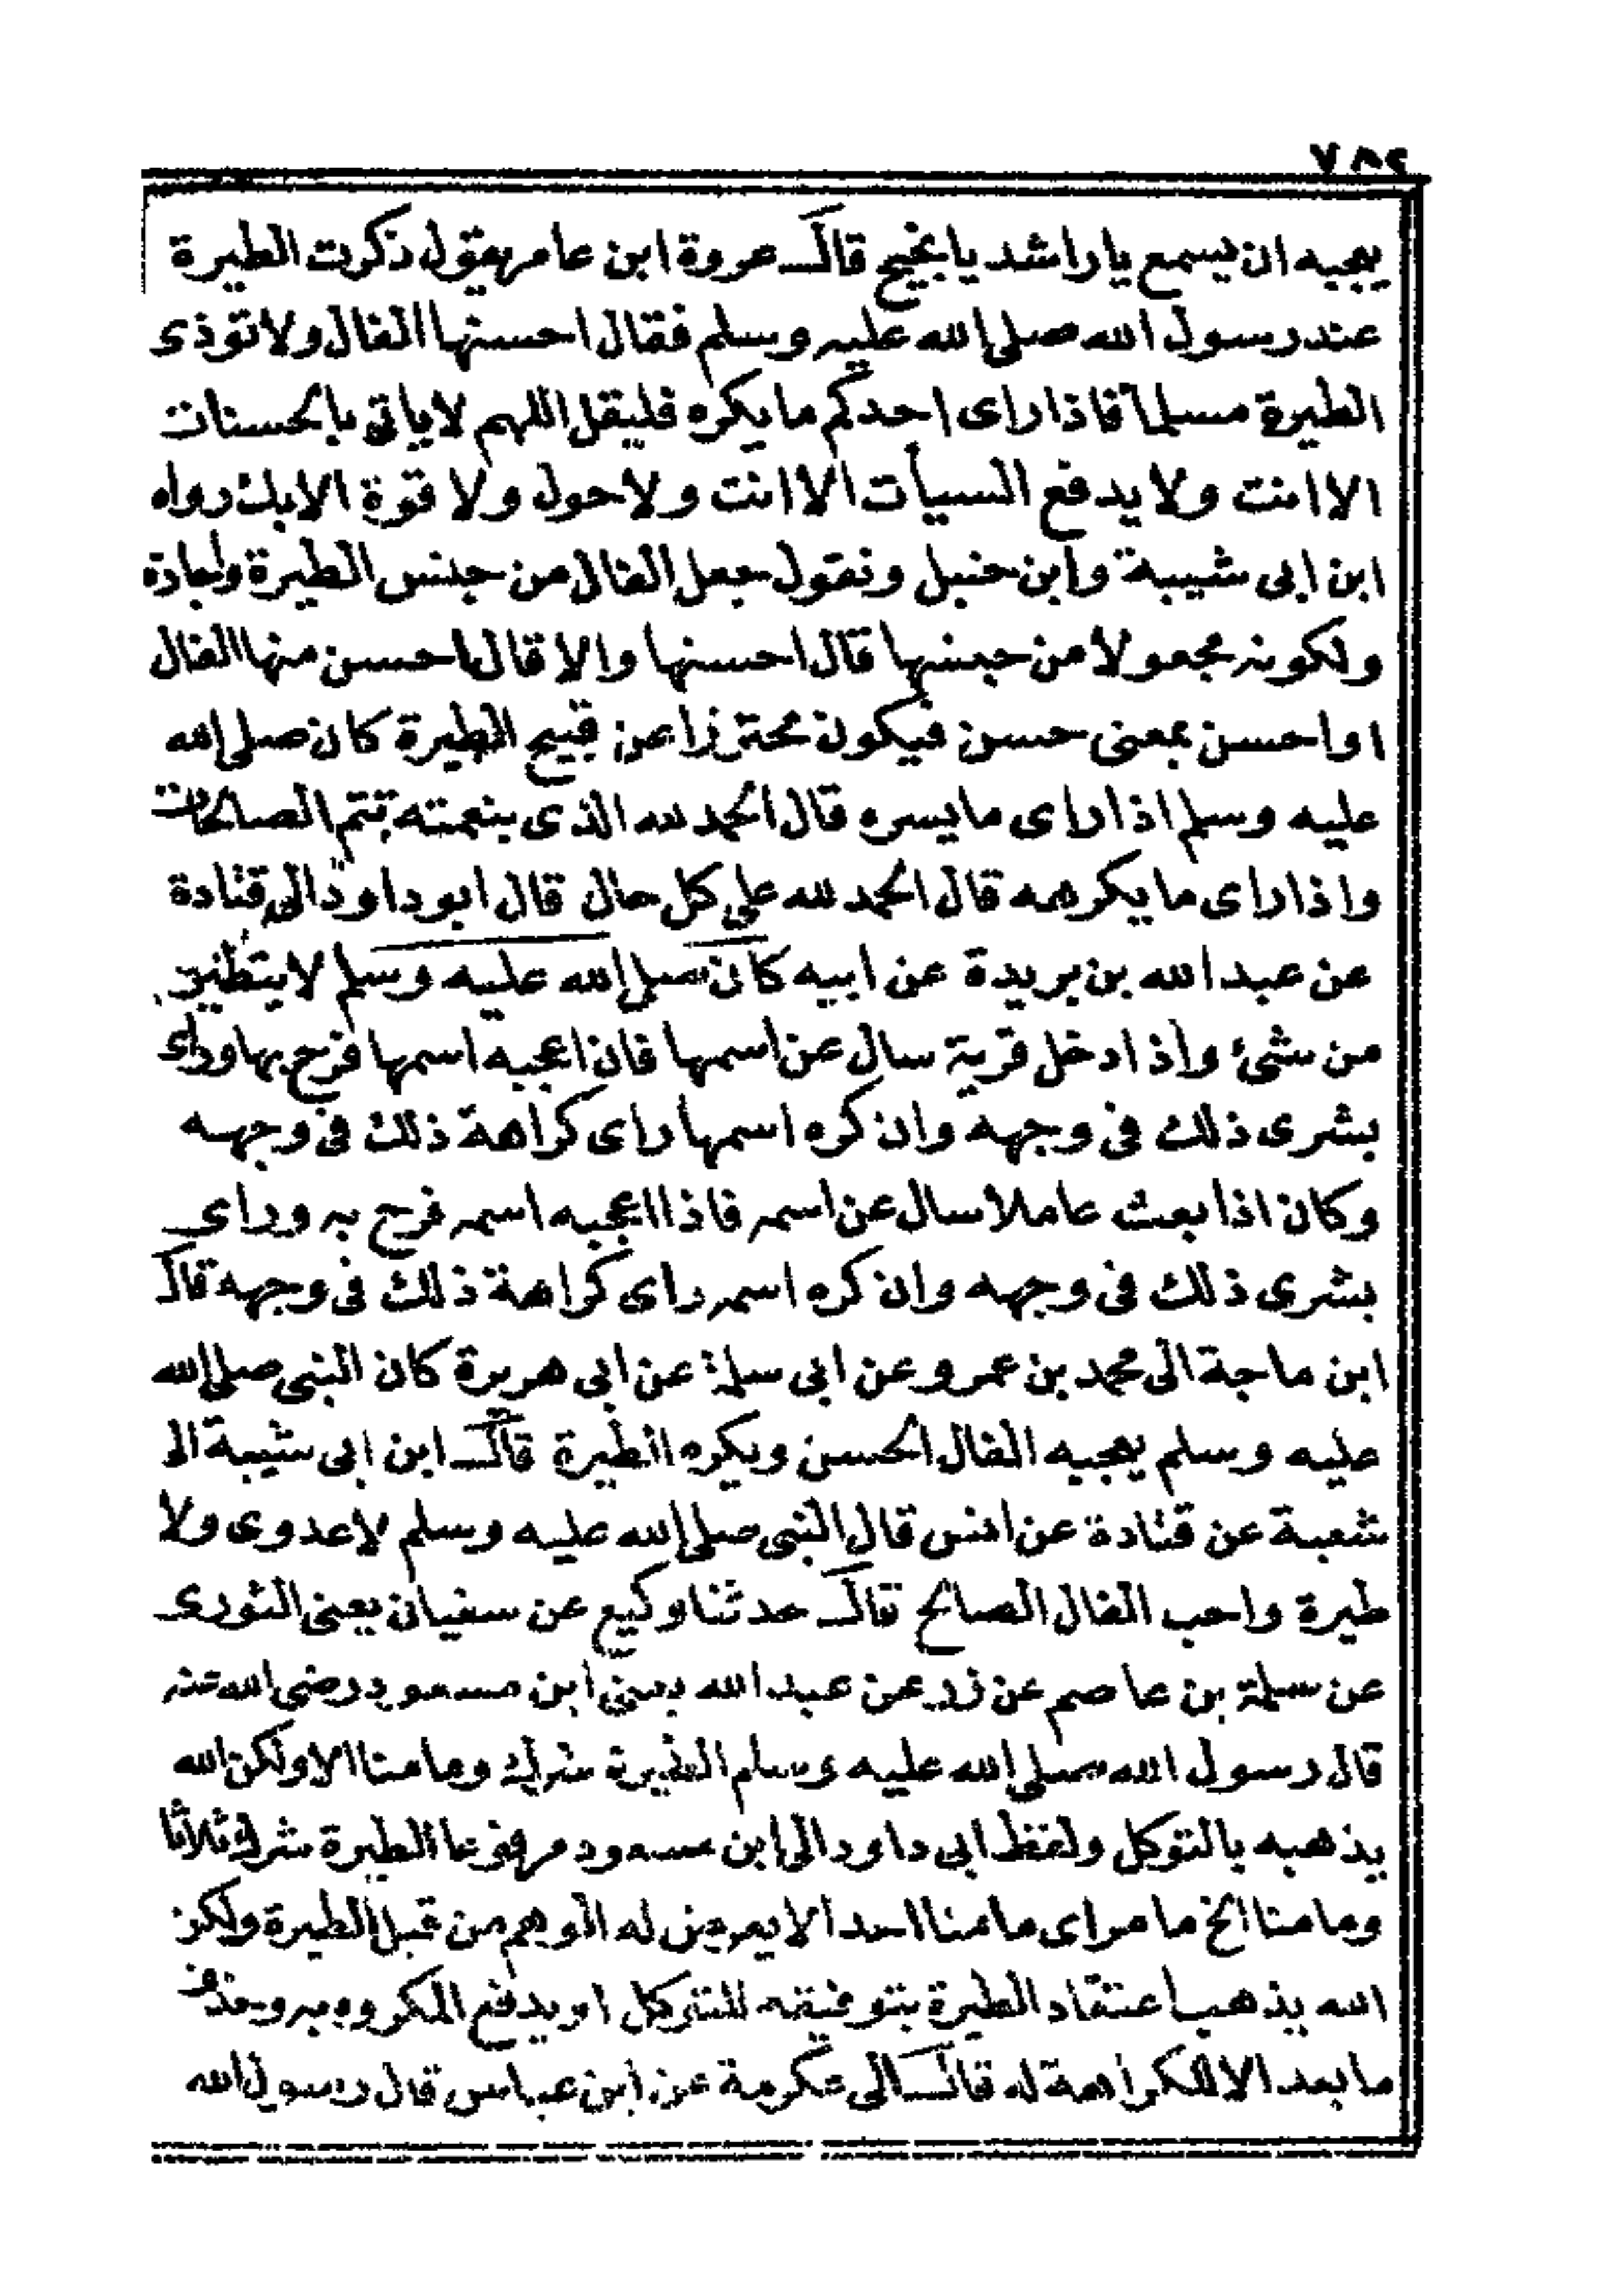 ٧٨٤
يعجبه ان يسمع يا راشد يا نجيح قال عروة ابن عامر يقول ذكرت الطيرة
عند رسول الله صلى الله عليه وسلم فقال احسنها الفال ولا تؤذى
الطيرة مسلما فاذا راى احدكم ما يكره فليقل اللهم لا ياتى بالحسنات
الا انت ولا يدفع السيأت الا انت ولا حول ولا قوة الا بك رواه
ابن ابى شيبة وابن حنبل ونقول جعل الفال من جنس الطيرة
ولكونه مجعولا من جنسها قال احسنها والا قال احسن منها الفال
او احسن بمعنى حسن فيكون محترزا عن قبيح الطيرة كان صلى الله
عليه وسلم اذا راى ما يسره قال الحمد لله الذى بنعمته تتم الصالحات
واذا راى ما يكرهه قال الحمد لله على كل حال قال ابو داود الى قتادة
عن عبد الله بن بريدة عن ابيه كان صلى الله عليه وسلم لا يتطير
من شئ واذا دخل قرية سال عن اسمها فان اعجبه اسمها فرح بها وراى
بشرى ذلك فى وجهه وان كره اسمها راى كراهة ذلك فى وجهه
وكان اذا بعث عاملا سال عن اسمه فاذا اعجبه اسمه فرح به وراى
بشرى ذلك فى وجهه وان كره اسمه راى كراهة ذلك فى وجهه قال
ابن ماجة الى محمد بن عمرو عن ابى سلمة عن ابى هريرة كان النبى صلى الله
عليه وسلم يعجبه الفال الحسن ويكره الطيرة قال ابن ابى شيبة الى
شعبة عن قتادة عن انس قال النبى صلى الله عليه وسلم لا عدوى ولا
طيرة واحب الفال الصالح قال حدثنا وكيع عن سفيان يعنى الثورى
عن سلمة بن عاصم عن زر عن عبد الله يعنى ابن مسعود رضى الله عنه
قال رسول الله صلى الله عليه وسلم الطيرة شرك وما منا الا ولكن الله
يذهبه بالتوكل ولفظ ابى داود الى ابن مسعود مرفوعا الطيرة شرك ثلاثا
وما منا الخ ما مر اى ما منا احد الا يعرض له الوهم من قبل الطيرة ولكن
الله يذهب اعتقاد الطيرة بتوفيقه للتوكل او يدفع المكروه به وحذف
ما بعد الا للكراهة له قال الى عكرمة عن ابن عباس قال رسول الله